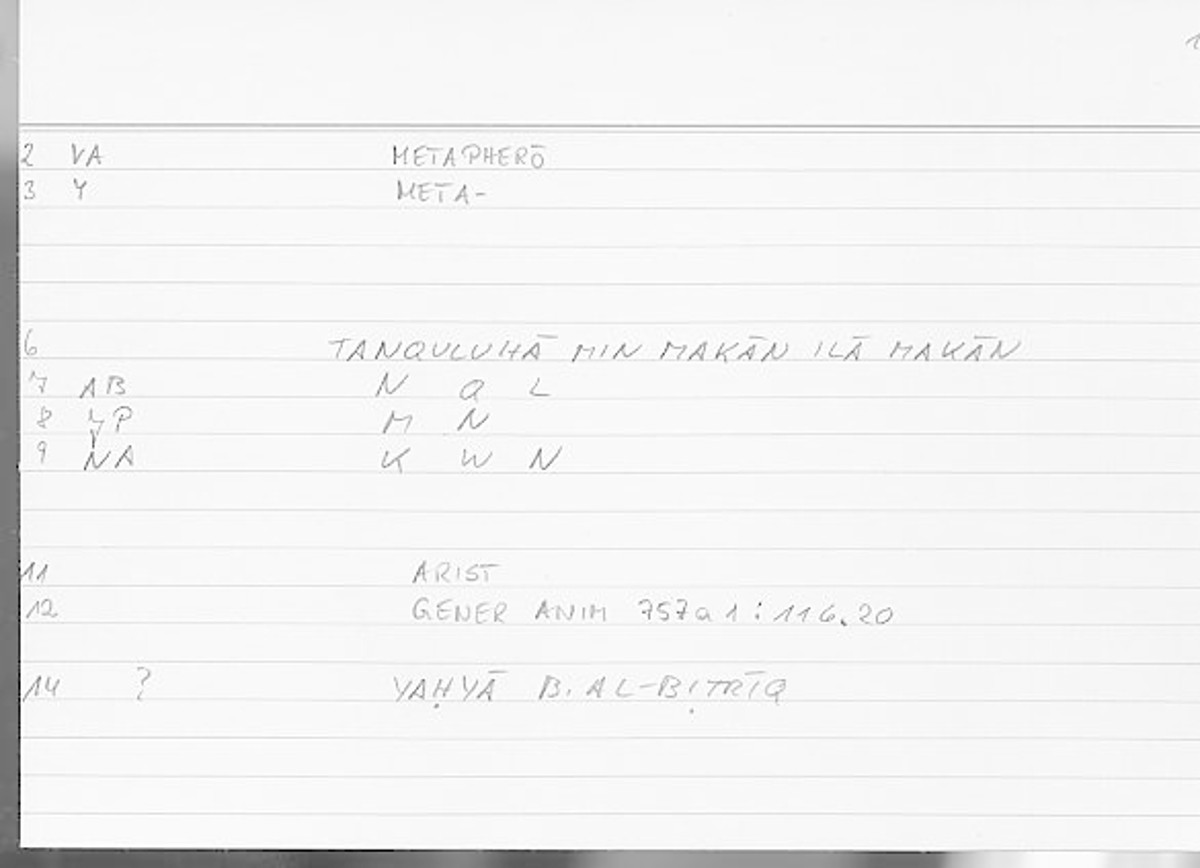 1
2 VA METAPHERŌ
3 Y META-
6 TANQULUHĀ MIN MAKĀN ILĀ MAKĀN
7 AB N Q L
8 P M N
9 NA K W N
11 ARIST
12 GENER ANIM 757a1:116.20
14 ? YAḤYĀ B. AL-BIṬRĪQ